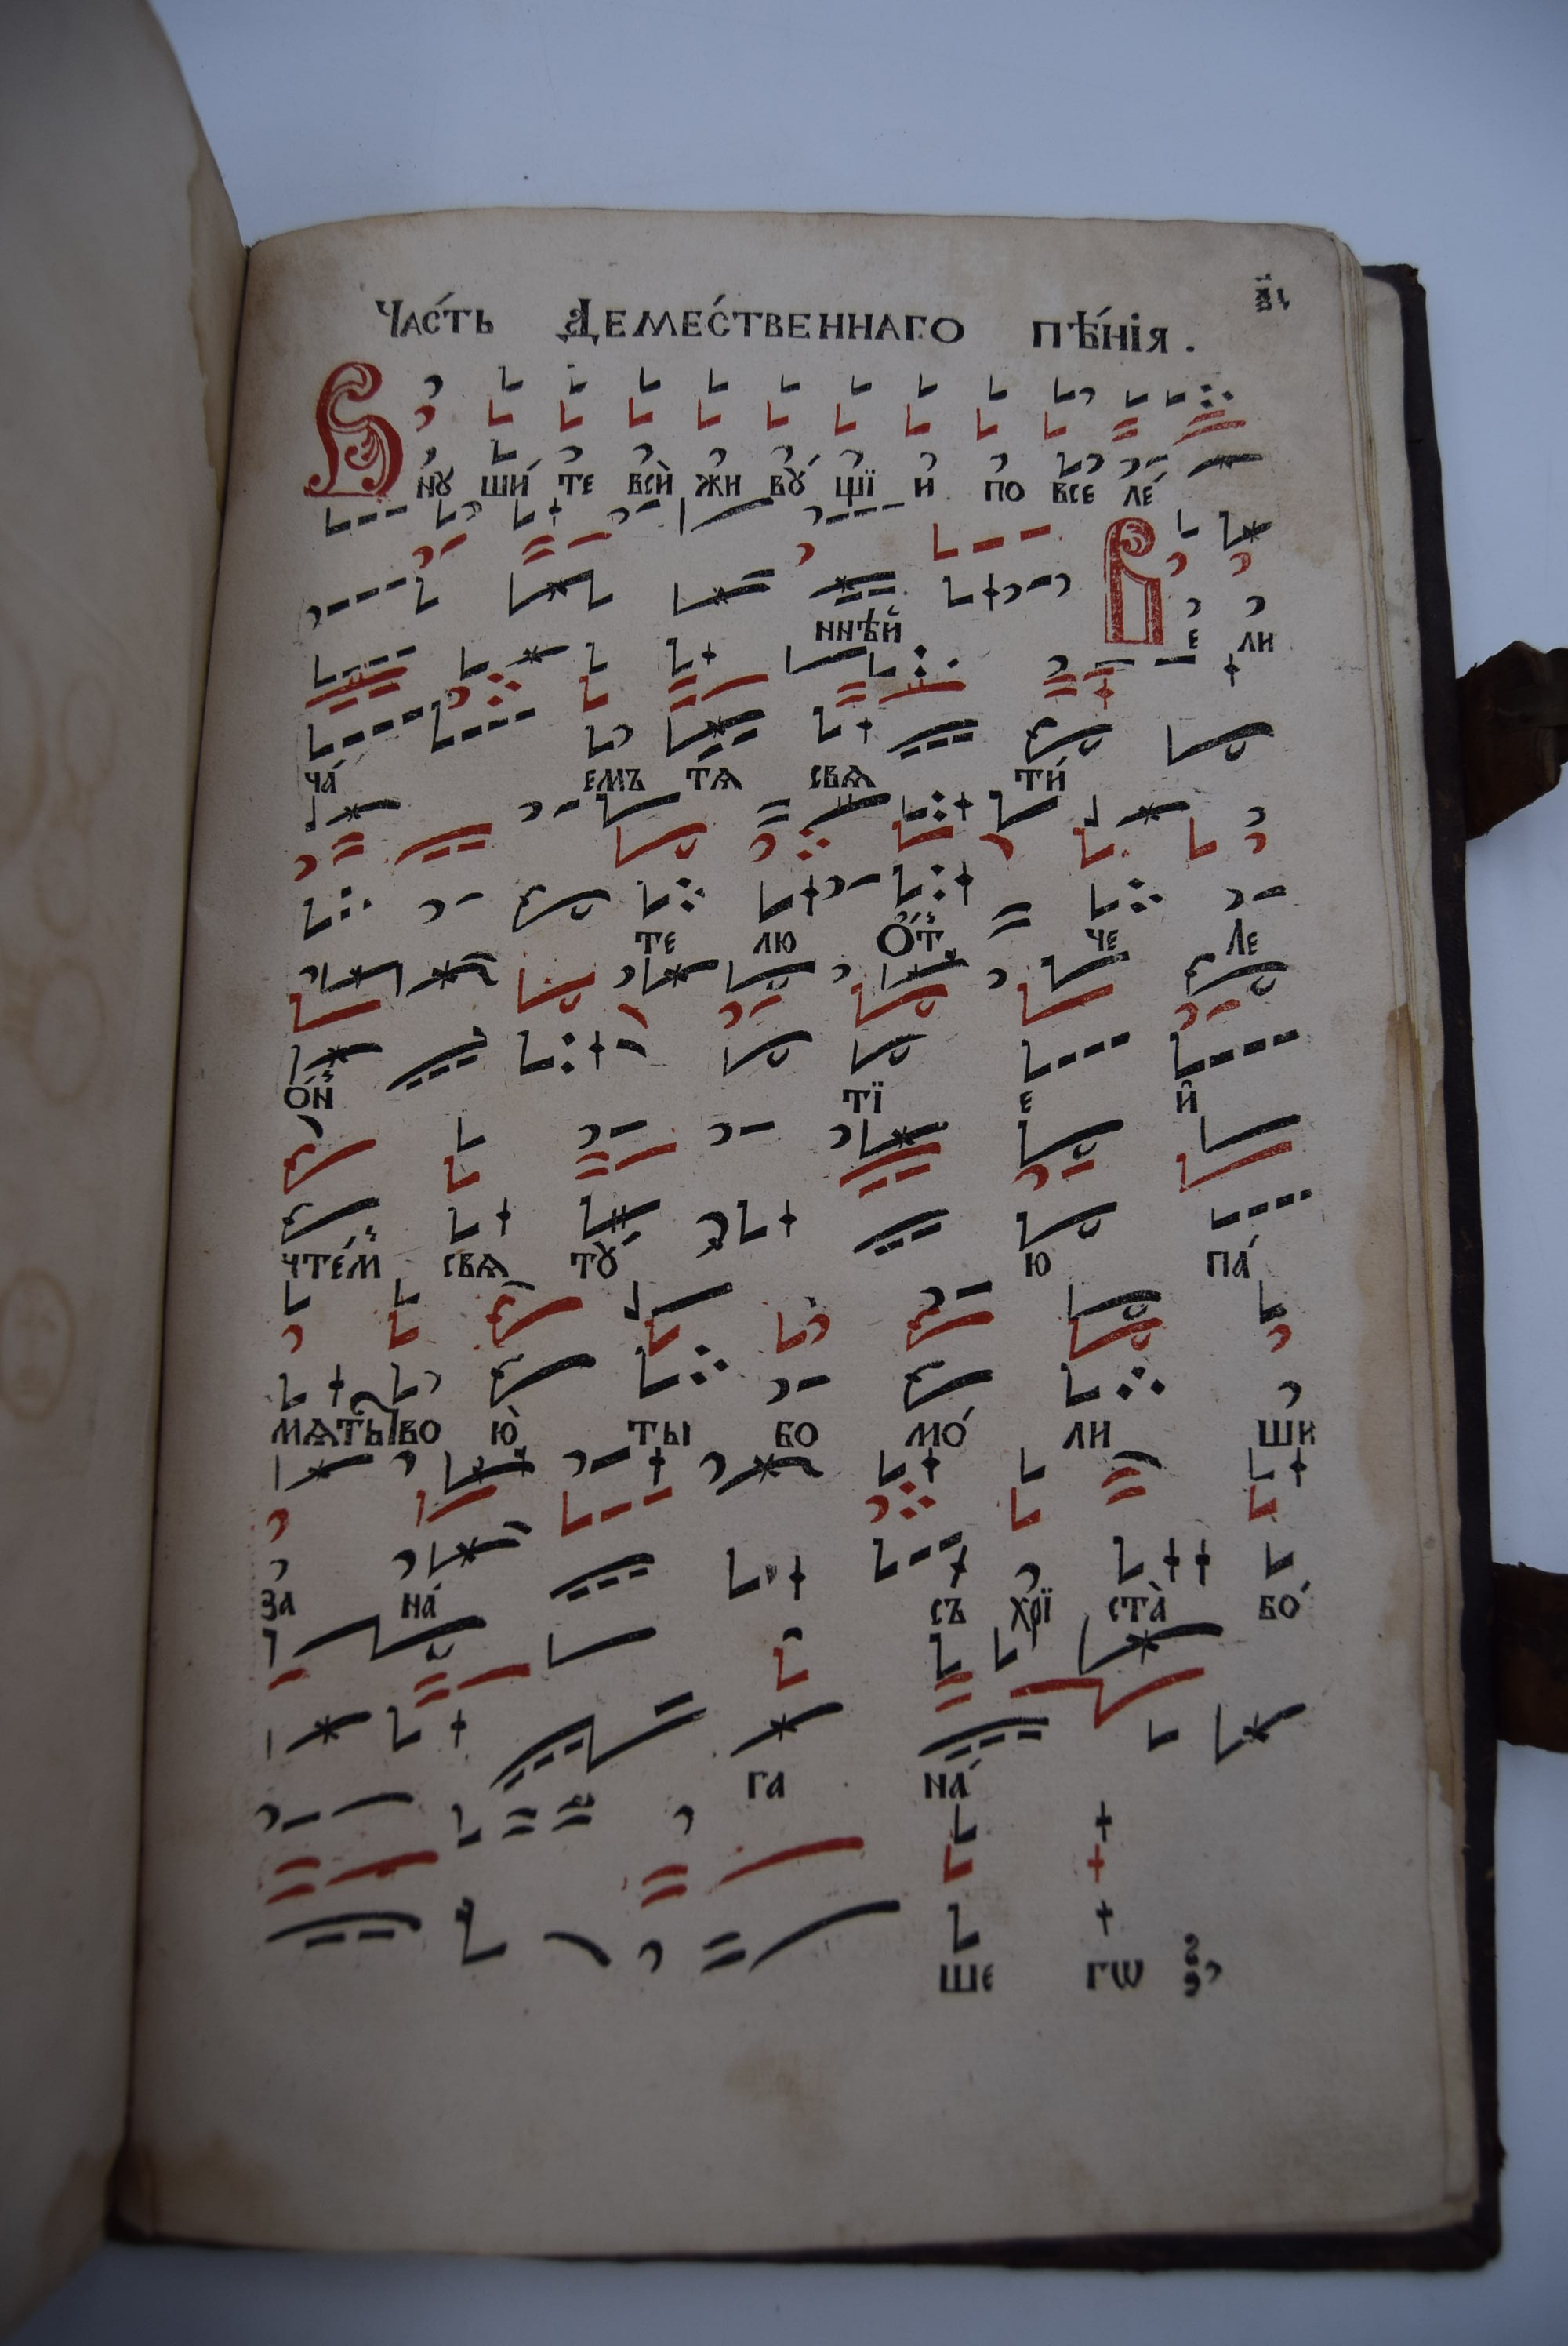 Ча́сть Демественнаго пѣ́нїя.
В нꙋ ши́ те всѝ жи вꙋ́ щїи и по все ле́
ннѣй В е ли
ча́ емъ тѧ свѧ ти́
те лю О҆т че ле
он тї е й
чте́м свѧ тꙋ́ ю па́
мѧть тво ю̀ ты бо мо́ ли ши
за на́ съ хрї ста̀ бо́
га на́
ше гѡ